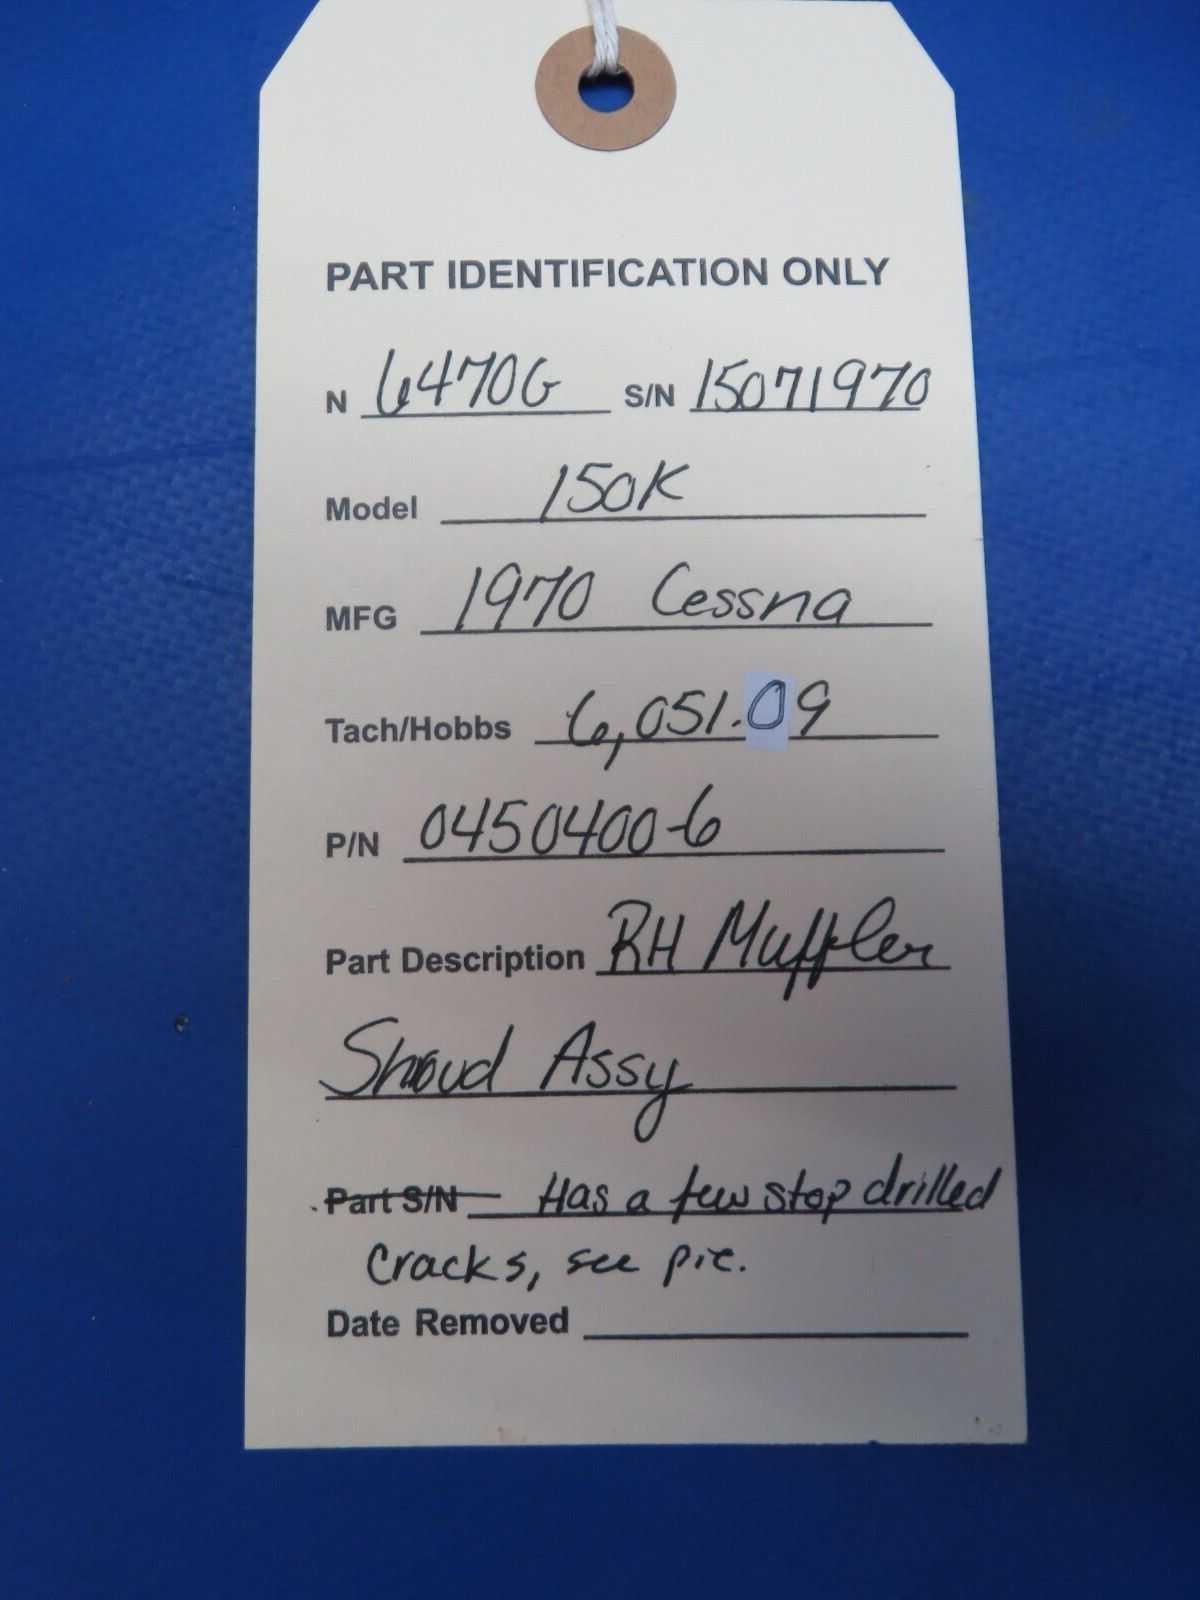 PART IDENTIFICATION ONLY
N 6470G S/N 15071970
Model 150K
MFG 1970 Cessna
Tach/Hobbs 6,051.09
P/N 0450400-6
Part Description RH Muffler
Shroud Assy
Part S/N Has a few stop drilled
cracks, see pic.
Date Removed